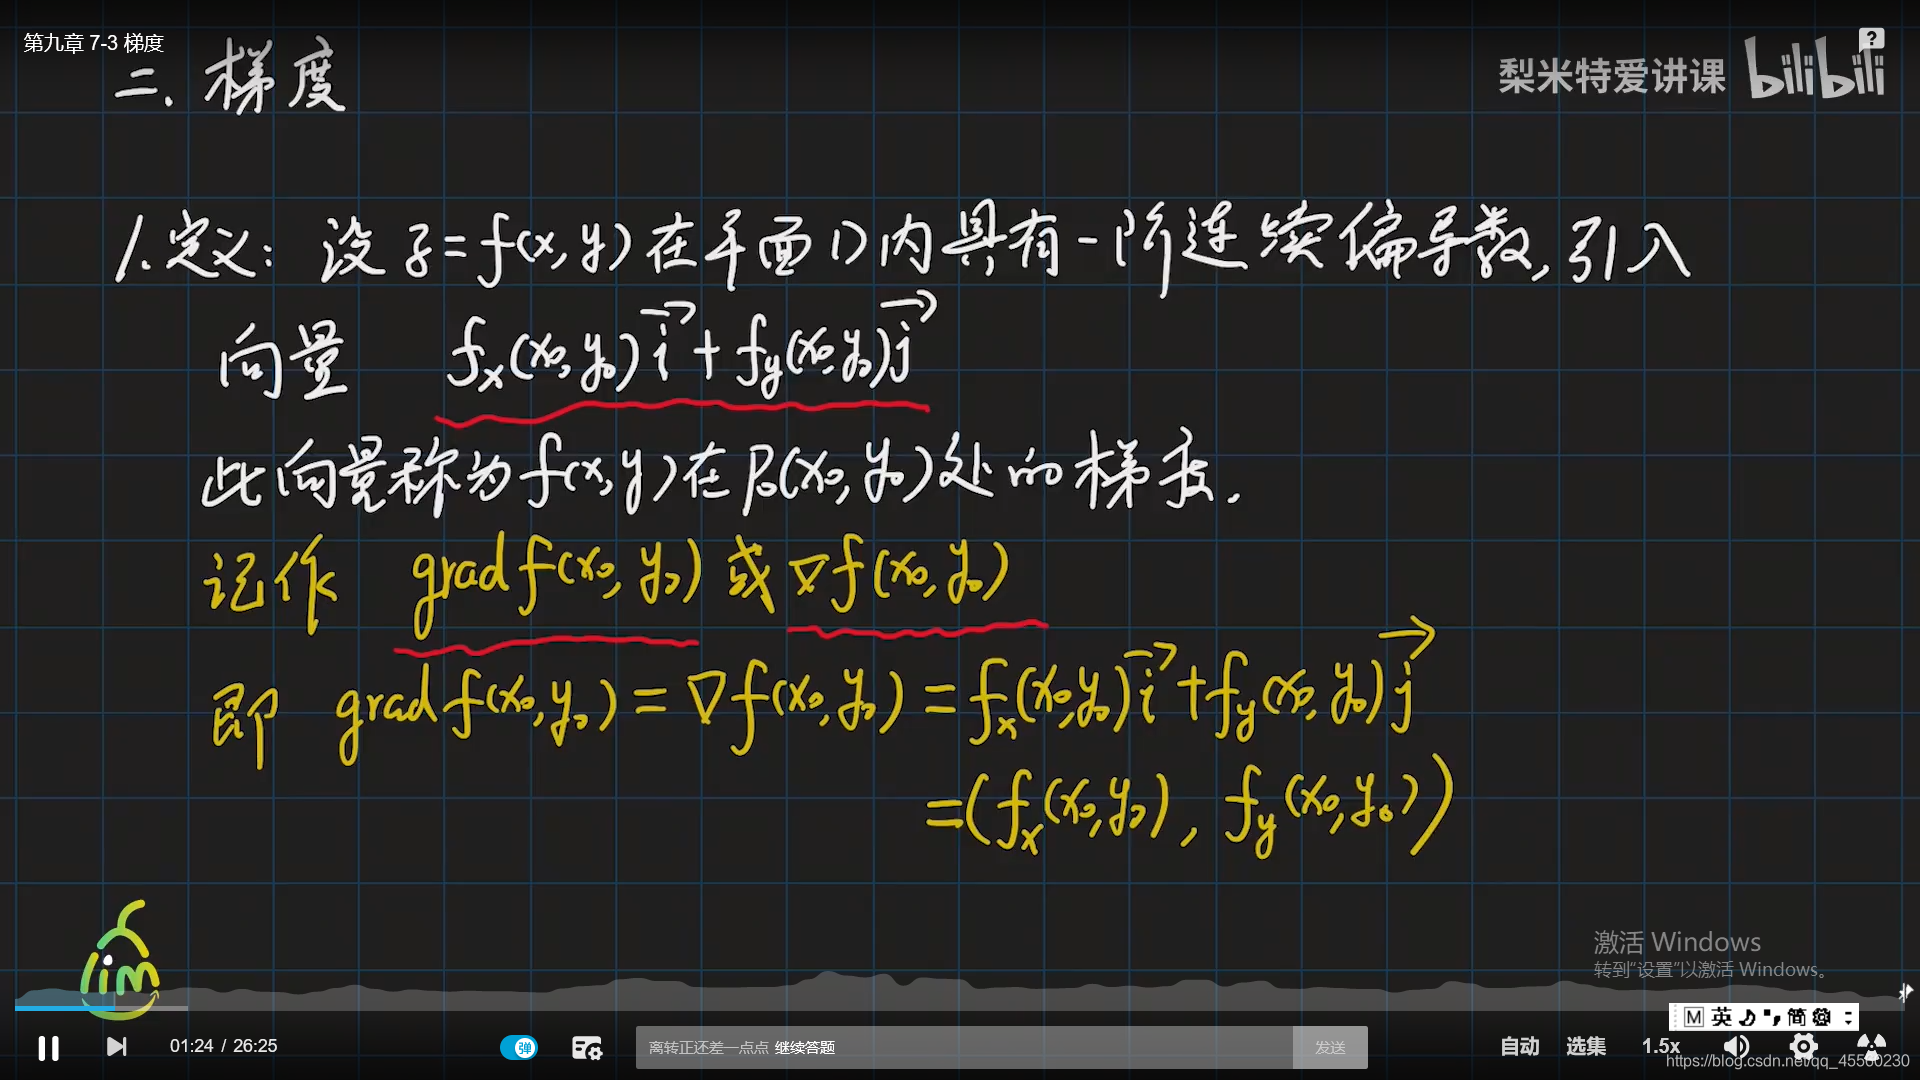 第九章 7-3 梯度
二. 梯度
梨米特爱讲课 bilibili
1. 定义: 设 z=f(x,y) 在平面D内具有一阶连续偏导数, 引入
向量 fₓ(x₀,y₀)i⃗+f_y(x₀,y₀)j⃗
此向量称为f(x,y)在P₀(x₀,y₀)处的梯度.
记作 gradf(x₀,y₀) 或 ∇f(x₀,y₀)
即 gradf(x₀,y₀) = ∇f(x₀,y₀) = fₓ(x₀,y₀)i⃗+f_y(x₀,y₀)j⃗
=(fₓ(x₀,y₀), f_y(x₀,y₀))
lim
激活 Windows
转到“设置”以激活 Windows。
M 英 简
01:24 / 26:25
弹
离转正还差一点点 继续答题
发送
自动 选集 1.5x
https://blog.csdn.net/qq_45500230